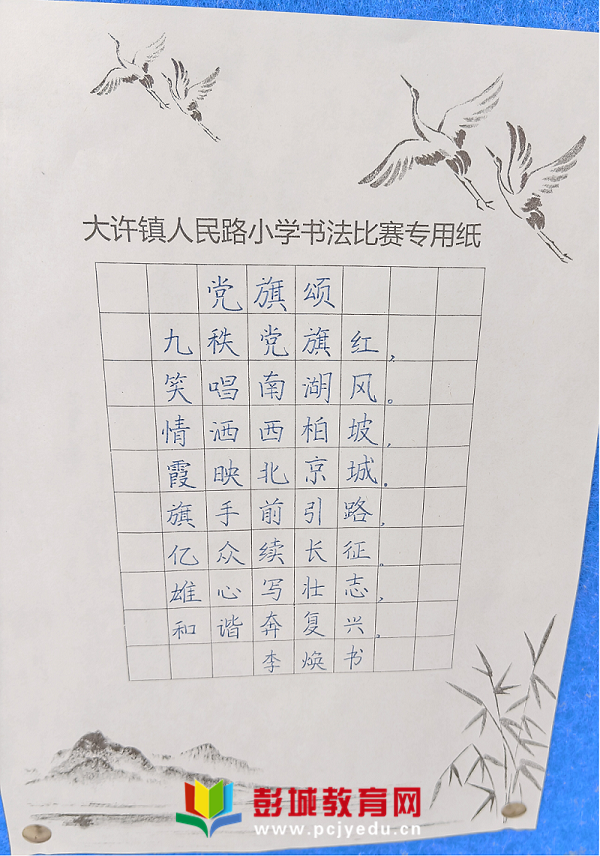 大许镇人民路小学书法比赛专用纸
党旗颂
九秩党旗红，
笑唱南湖风。
情洒西柏坡，
霞映北京城。
旗手前引路，
亿众续长征。
雄心写壮志，
和谐奔复兴。
李焕书
彭城教育网
www.pcjyedu.cn